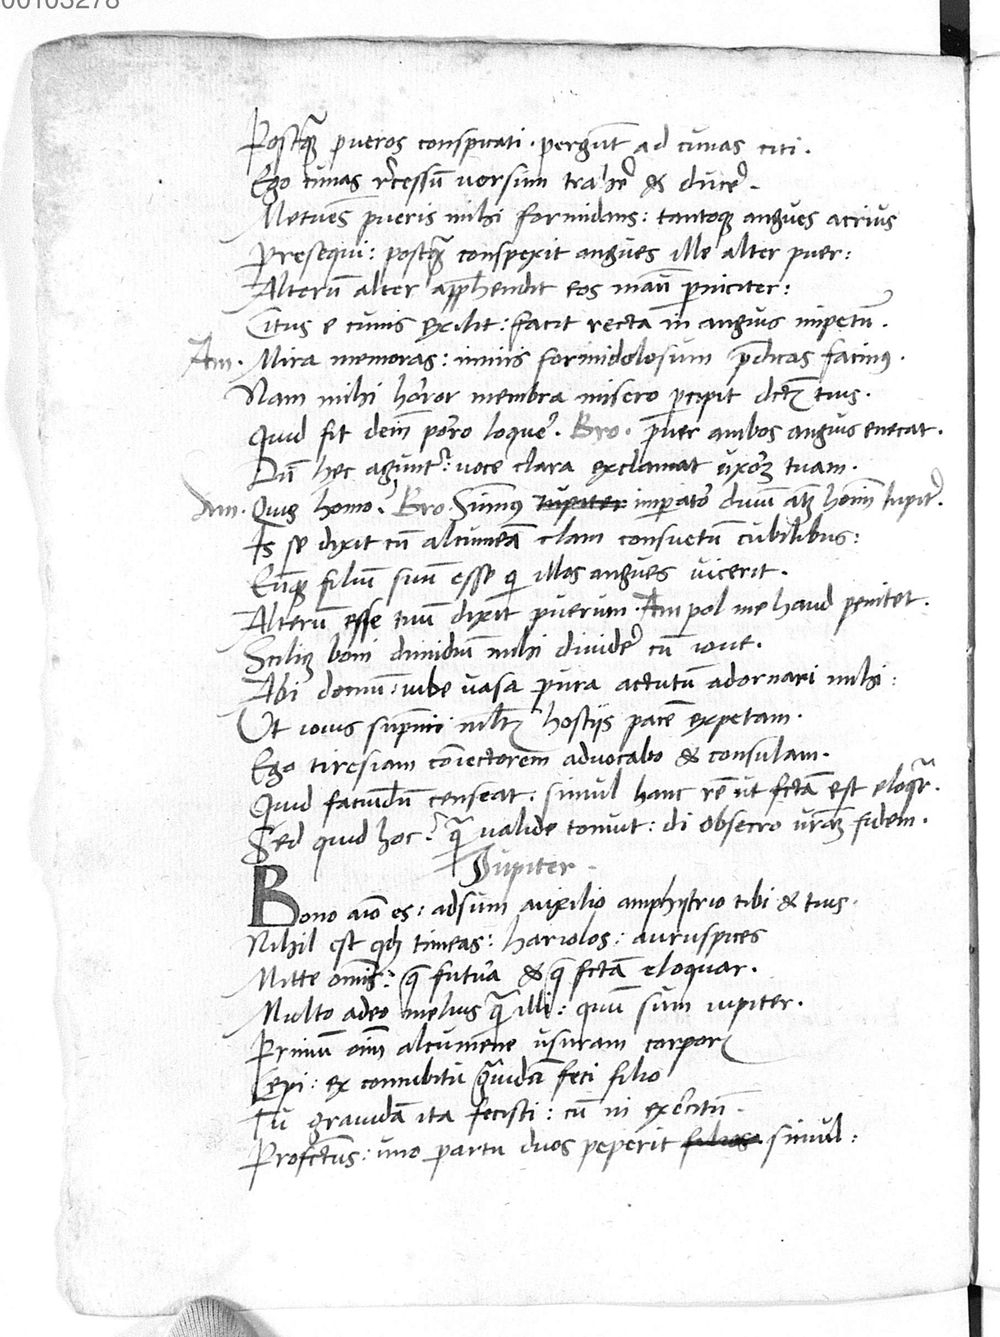 00103278
Postq̃ pueros conspicati · pergũt ad cunas citi .
Ego cunas rc̃essũ uorsum trahẽ & ducẽ .
Metuẽs pueris mihi formidans : tantoq; angues acrius
Presequi : postq̃ conspexit angues ille alter puer :
Alterũ alter app̃hendit eos manũ p̃niciter :
Citus e cunis exilit : facit recta in anguis impetũ .
Am · Mira memoras : nimis formidolosum p̃dicas facinꝰ .
Nam mihi horror membra misero p̱cipit dictꝭ tuis .
Quid fit dein̄ porro loquerẽ . Bro . puer ambos anguis enecat .
Dũ hec agunt᷑ : uoce clara exclamat uxorẽ tuam .
Am · Quis homo ? Bro Summꝰ Iupiter imperator diuũ atq; hominũ Iupiter .
Is se dixit cũ alcumena clam consuetũ cubilibus :
Eũq; filiũ suũ esse qi illos angues uicerit .
Alterũ esse tuũ dixit puerum . Am pol me haud penitet .
Scilicꝫ boni dimidiũ mihi diuiderẽ cũ ioue .
Abi domũ : iube uasa pura actutũ adornari mihi :
Ut iouis supremi multꝭ hostijs pacẽ expetam .
Ego tiresiam coniectorem aduocabo & consulam .
Quid faciundũ censeat . simul hanc rẽ ut fctã est eloq̃r .
Sed quid hoc ? q̃ ualide tonuit : di obsecro urãm fidem .
Iupiter .
Bono aĩo es : adsum auxilio amphytrio tibi & tuis .
Nihil est qđ timeas : hariolos : auruspices
Mitte omĩs : q̃ futura & q̃ fctã eloquar .
Multo adeo melius q̃ illi : quũ sum iupiter .
Primũ oĩm alcumene usuram corporꝭ
Cepi : ex concubitu grauidã feci filio
Tu grauidã ita fecisti : cũ in exercitũ
Profectus : uno partu duos peperit filios simul :